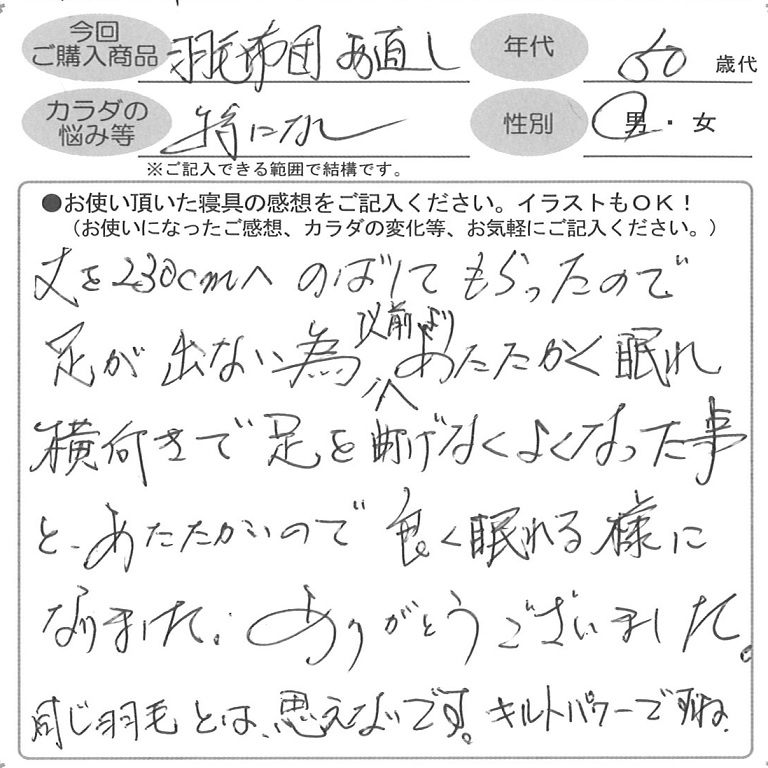 今回
ご購入商品
羽毛布団 お直し
年代
50 歳代
カラダの
悩み等
特になし
性別
男・女
※ご記入できる範囲で結構です。
●お使い頂いた寝具の感想をご記入ください。イラストもOK!
(お使いになったご感想、カラダの変化等、お気軽にご記入ください。)
丈を230cmへ のばしてもらったので
足が出ない為 以前より あたたかく眠れ
横向きで足を曲げなくてよくなった事
と、あたたかいので良く眠れる様に
なりました。ありがとうございました。
同じ羽毛とは、思えないです。キルトパワーですね。